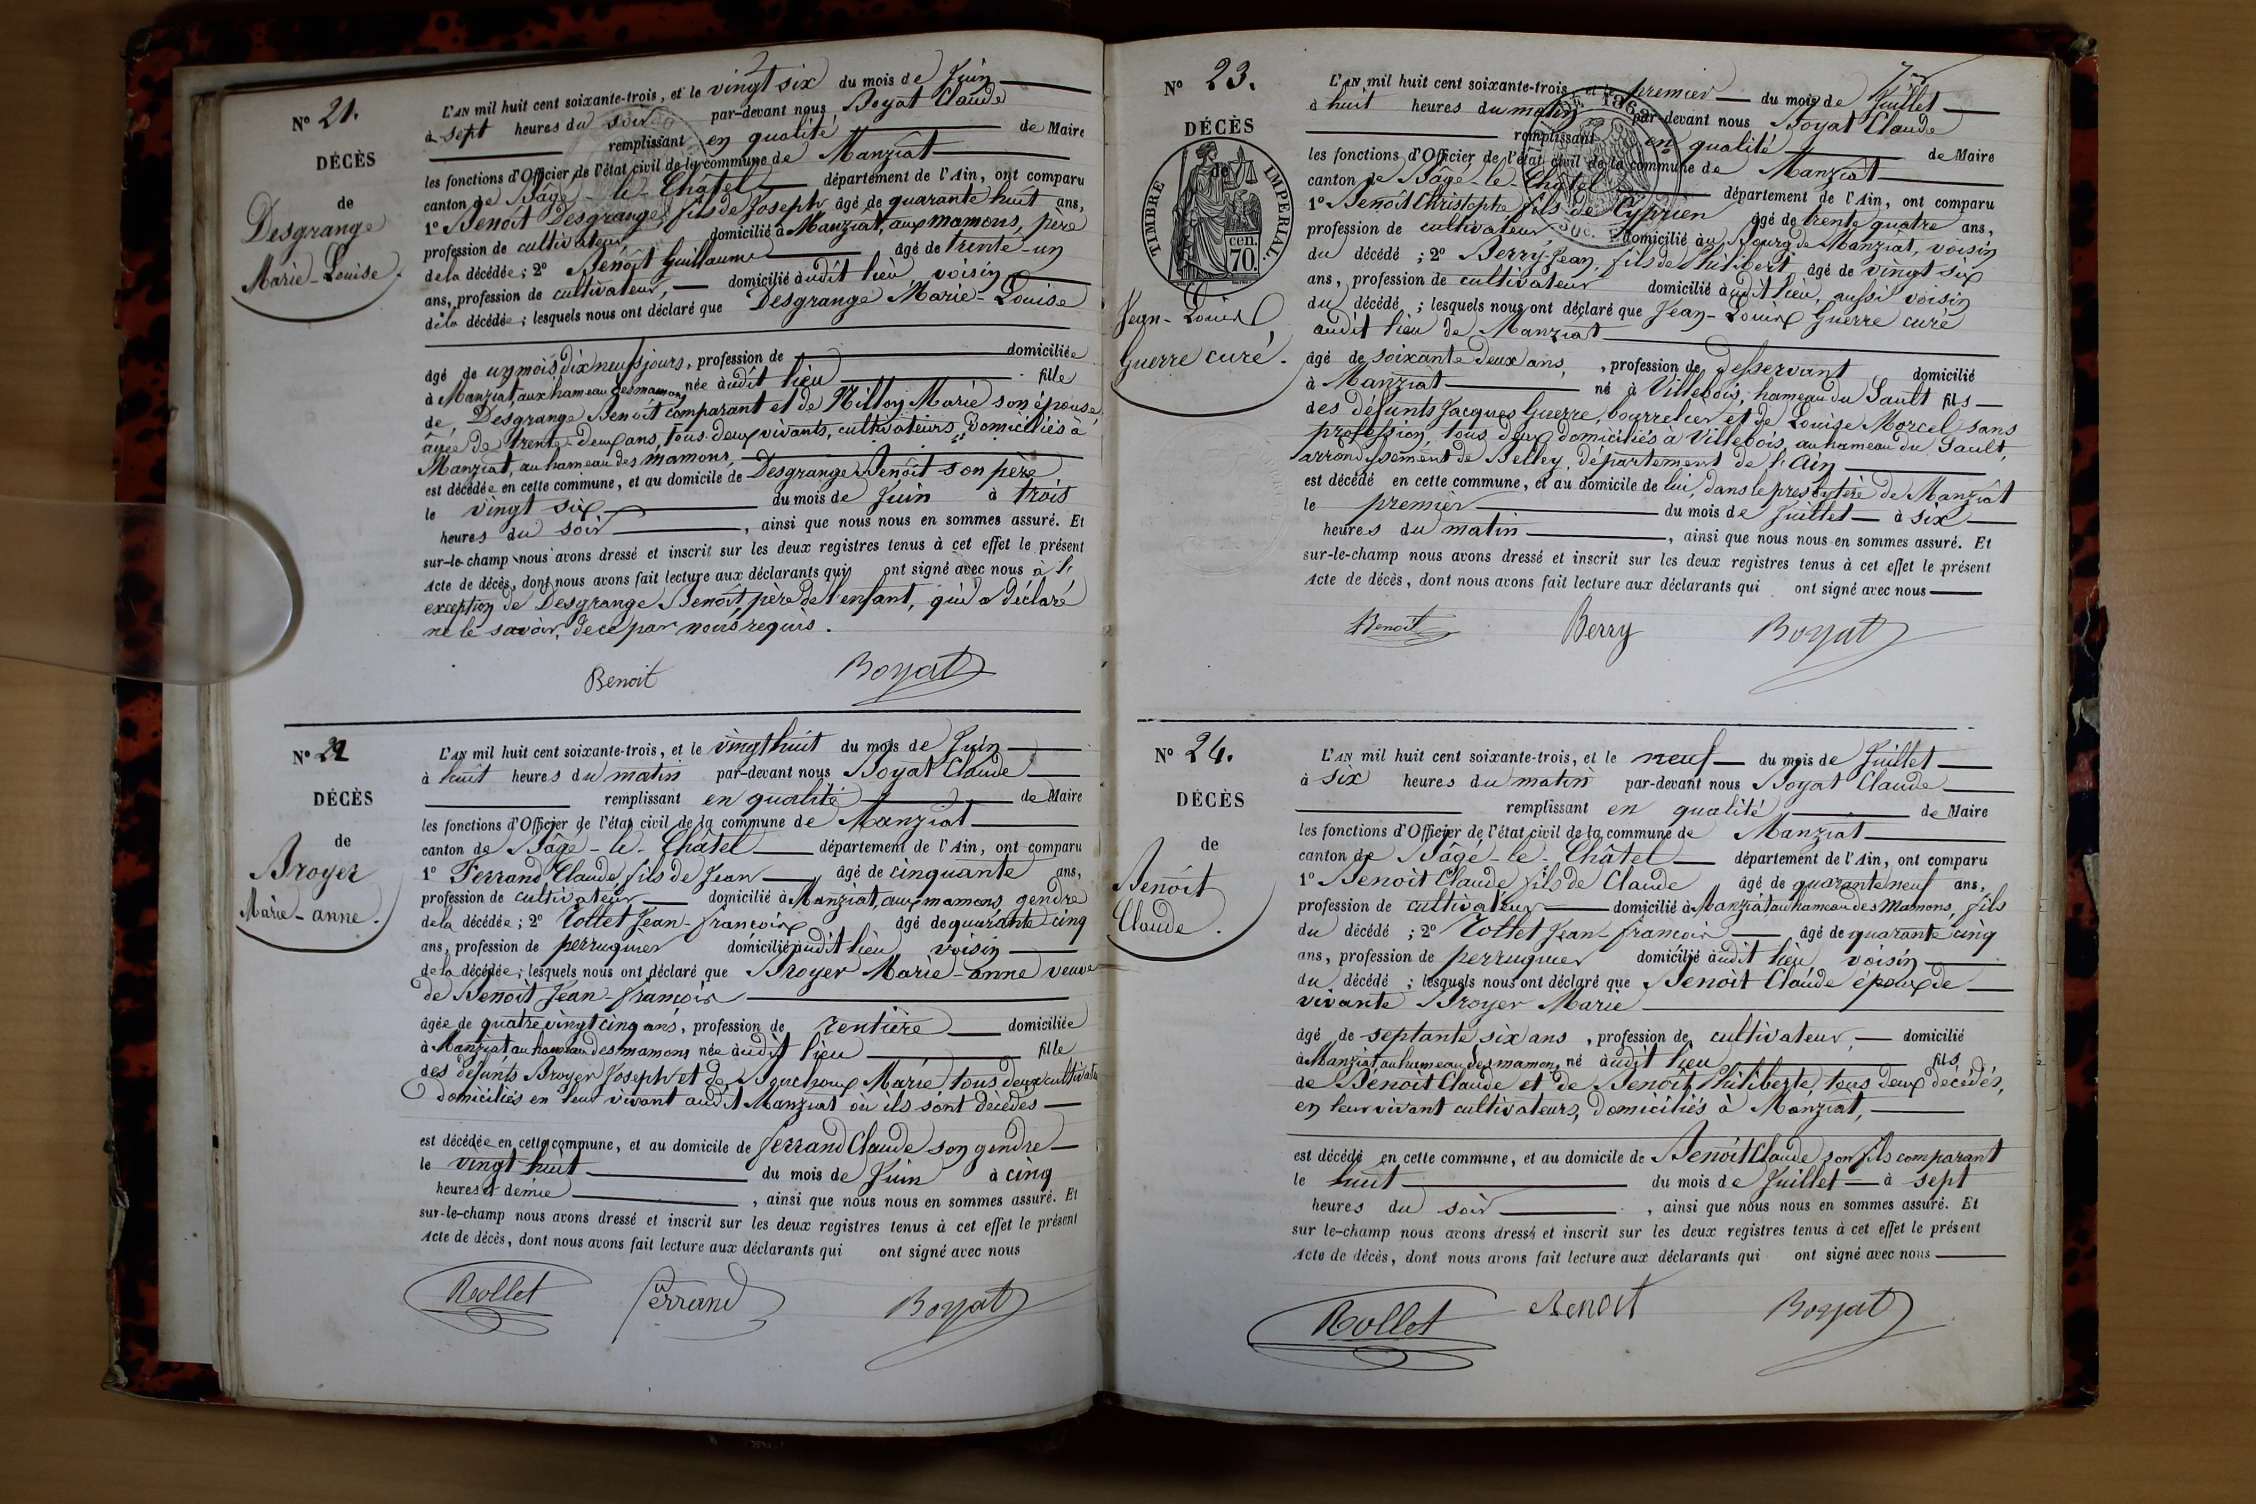 N° 21.
DÉCÈS
de
Desgrange
Marie-Louise.
L'AN mil huit cent soixante-trois, et le vingt six du mois de Juin
à sept heures du soir par-devant nous Boyat Claude
remplissant en qualité de Maire
les fonctions d'Officier de l'état civil de la commune de Manziat
canton de Bâgé-le-Châtel département de l'Ain, ont comparu
1° Benoit Desgrange, fils de Joseph âgé de quarante huit ans,
profession de cultivateur, domicilié à Manziat, aux mamons, père
de la décédée; 2° Benoît Guillaume âgé de trente-un
ans, profession de cultivateur, domicilié àudit lieu voisin
de la décédée; lesquels nous ont déclaré que Desgrange Marie-Louise
âgé de un mois dix neuf jours, profession de domiciliée
à Manziat, aux hameau des mamons née àudit lieu fille
de, Desgrange Benoit comparant et de Nillon Marie son épouse,
âgée de trente-deux ans, tous deux vivants, cultivateurs, domiciliés à
Manziat, au hameau des mamons,
est décédée en cette commune, et au domicile de Desgrange Benôit son père
le vingt six du mois de Juin à trois
heures du soir, ainsi que nous nous en sommes assuré. Et
sur-le-champ nous avons dressé et inscrit sur les deux registres tenus à cet effet le présent
Acte de décès, dont nous avons fait lecture aux déclarants qui ont signé avec nous à l'
exception de Desgrange Benoît, père de l'enfant, qui a déclaré
ne le savoir, de ce par nous requis.
Benoit Boyat
N° 22
DÉCÈS
de
Broyer
Marie-anne.
L'AN mil huit cent soixante-trois, et le vingt huit du mois de Juin
à huit heures du matin par-devant nous Boyat Claude
remplissant en qualité de Maire
les fonctions d'Officier de l'état civil de la commune de Manziat
canton de Bâgé-le-Châtel département de l'Ain, ont comparu
1° Ferrand Claude fils de Jean âgé de cinquante ans,
profession de cultivateur domicilié à Manziat, aux mamons, gendre
de la décédée; 2° Rollet Jean-françois âgé de quarante cinq
ans, profession de perruquier domicilié àudit lieu voisin
de la décédée; lesquels nous ont déclaré que Broyer Marie-anne veuve
de Benoit Jean-françois
âgée de quatre vingt cinq ans, profession de rentière domiciliée
à Manziat au hameau des mamons née àudit lieu fille
des défunts Broyer Joseph et de Bouchoux Marie tous deux cultivat.
domiciliés en leur vivant audit Manziat où ils sont décédés
est décédée en cette commune, et au domicile de ferrand Claude son gendre
le vingt huit du mois de Juin à cinq
heures et demie, ainsi que nous nous en sommes assuré. Et
sur-le-champ nous avons dressé et inscrit sur les deux registres tenus à cet effet le présent
Acte de décès, dont nous avons fait lecture aux déclarants qui ont signé avec nous
Rollet ferrand Boyat
N° 23.
DÉCÈS
de
TIMBRE IMPERIAL
70 cen.
Jean-Louis
Guerre curé.
L'AN mil huit cent soixante-trois et le premier du mois de Juillet
à huit heures du matin par-devant nous Boyat Claude
remplissant en qualité de Maire
les fonctions d'Officier de l'état civil de la commune de Manziat
canton de Bâgé-le-Châtel département de l'Ain, ont comparu
1° Benoit Christophe fils de Cyprien âgé de trente quatre ans,
profession de cultivateur domicilié au Bourg de Manziat, voisin
du décédé; 2° Berry Jean, fils de Philibert âgé de vingt six
ans, profession de cultivateur domicilié àudit lieu, aussi voisin
du décédé; lesquels nous ont déclaré que Jean-Louis Guerre curé
audit lieu de Manziat
âgé de soixante deux ans, profession de desservant domicilié
à Manziat né à Villebois, hameau du Sault fils
des défunts Jacques Guerre, bourrelier et de Louise Morcel sans
profession, tous deux domiciliés à Villebois, au hameau du Sault,
arrondissement de Belley, département de l'Ain
est décédé en cette commune, et au domicile de lui, dans le presbytère de Manziat
le premier du mois de Juillet à six
heures du matin, ainsi que nous nous en sommes assuré. Et
sur-le-champ nous avons dressé et inscrit sur les deux registres tenus à cet effet le présent
Acte de décès, dont nous avons fait lecture aux déclarants qui ont signé avec nous
Benoit Berry Boyat
N° 24.
DÉCÈS
de
Benoît
Claude.
L'AN mil huit cent soixante-trois, et le neuf du mois de Juillet
à six heures du matin par-devant nous Boyat Claude
remplissant en qualité de Maire
les fonctions d'Officier de l'état civil de la commune de Manziat
canton de Bâgé-le-Châtel département de l'Ain, ont comparu
1° Benoît Claude fils de Claude âgé de quarante neuf ans,
profession de cultivateur domicilié à Manziat au hameau des Mamons, fils
du décédé; 2° Rollet Jean-françois âgé de quarante cinq
ans, profession de perruquier domicilié àudit lieu, voisin
du décédé; lesquels nous ont déclaré que Benoît Claude époux de
vivante Broyer Marie
âgé de septante six ans, profession de cultivateur, domicilié
à Manziat, au hameau des mamons, né àudit lieu fils
de Benoît Claude et de Benoît Philiberte, tous deux décédés,
en leur vivant cultivateurs, domiciliés à Manziat,
est décédé en cette commune, et au domicile de Benoît Claude son fils comparant
le huit du mois de Juillet à sept
heures du soir, ainsi que nous nous en sommes assuré. Et
sur le-champ nous avons dressé et inscrit sur les deux registres tenus à cet effet le présent
Acte de décès, dont nous avons fait lecture aux déclarants qui ont signé avec nous
Rollet Benoit Boyat